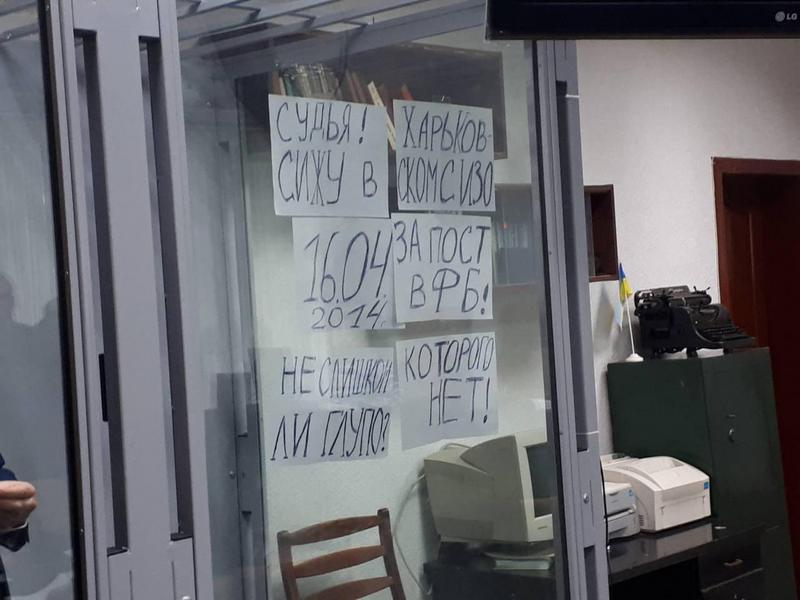 LG
СУДЬЯ!
СИЖУ В
ХАРЬКОВ-
СКОМ СИЗО
16.04
2014г.
ЗА ПОСТ
В ФБ!
НЕ СЛИШКОМ
ЛИ ГЛУПО?
КОТОРОГО
НЕТ!